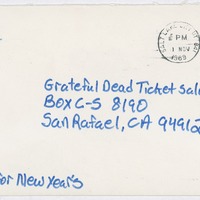 PM
1 NOV
Grateful Dead Ticket Sal
Box C-S 8190
San Rafael, CA 94912
for New Years